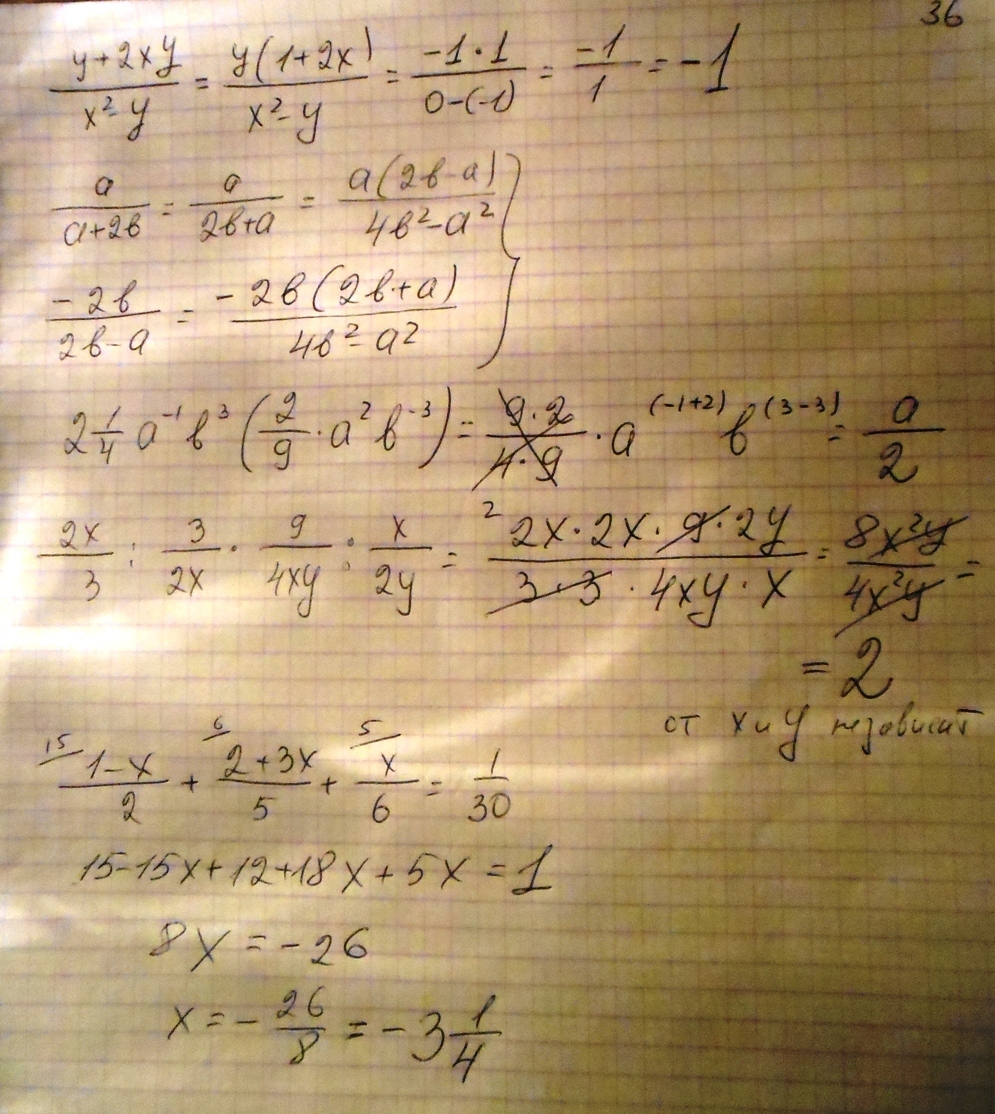 36
(y+2xy)/(x²-y) = y(1+2x)/(x²-y) = (-1·1)/(0-(-1)) = -1/1 = -1
a/(a+2b) = a/(2b+a) = a(2b-a)/(4b²-a²) }
-2b/(2b-a) = -2b(2b+a)/(4b²-a²)
2 1/4 a⁻¹ b³ (2/9 · a² b⁻³) = (9·2)/(4·9) · a^(-1+2) b^(3-3) = a/2
2x/3 : 3/2x · 9/4xy : x/2y = ² (2x·2x·9·2y)/(3·3·4xy·x) = 8x²y/4x²y =
= 2
от x и y независит
¹⁵ (1-x)/2 + ⁶ (2+3x)/5 + ⁵ x/6 = 1/30
15-15x+12+18x+5x = 1
8x = -26
x = - 26/8 = -3 1/4